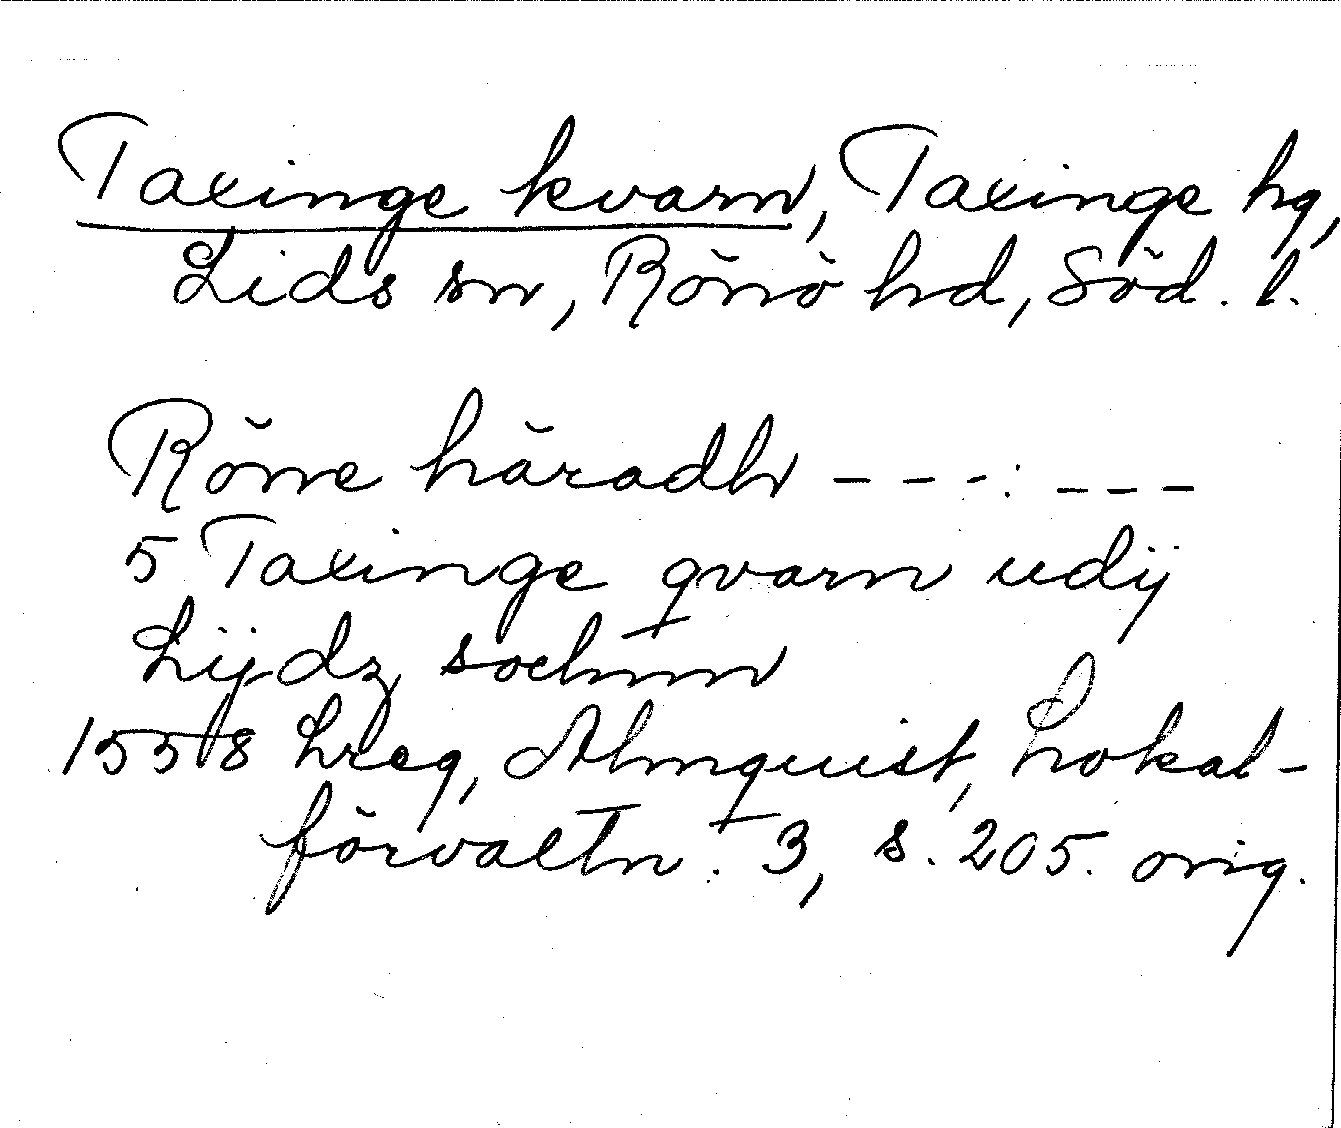 Taxinge kvarn, Taxinge hg,
Lids sn, Rönö hd, Söd. l.
Röne häradh - - - : - - -
5 Taxinge qvarn udÿ
Lÿdz sochnn
1558 Lreg, Almquist, Lokal-
förvaltn. 3, s. 205. orig.